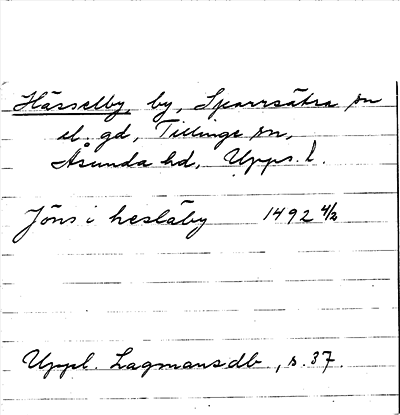 Hässelby, by, Sparrsätra sn
el. gd, Tillinge sn,
Åsunda hd, Upps. l.
Jöns i heslæby 1492 4/2
Uppl. Lagmansdb, s. 37.